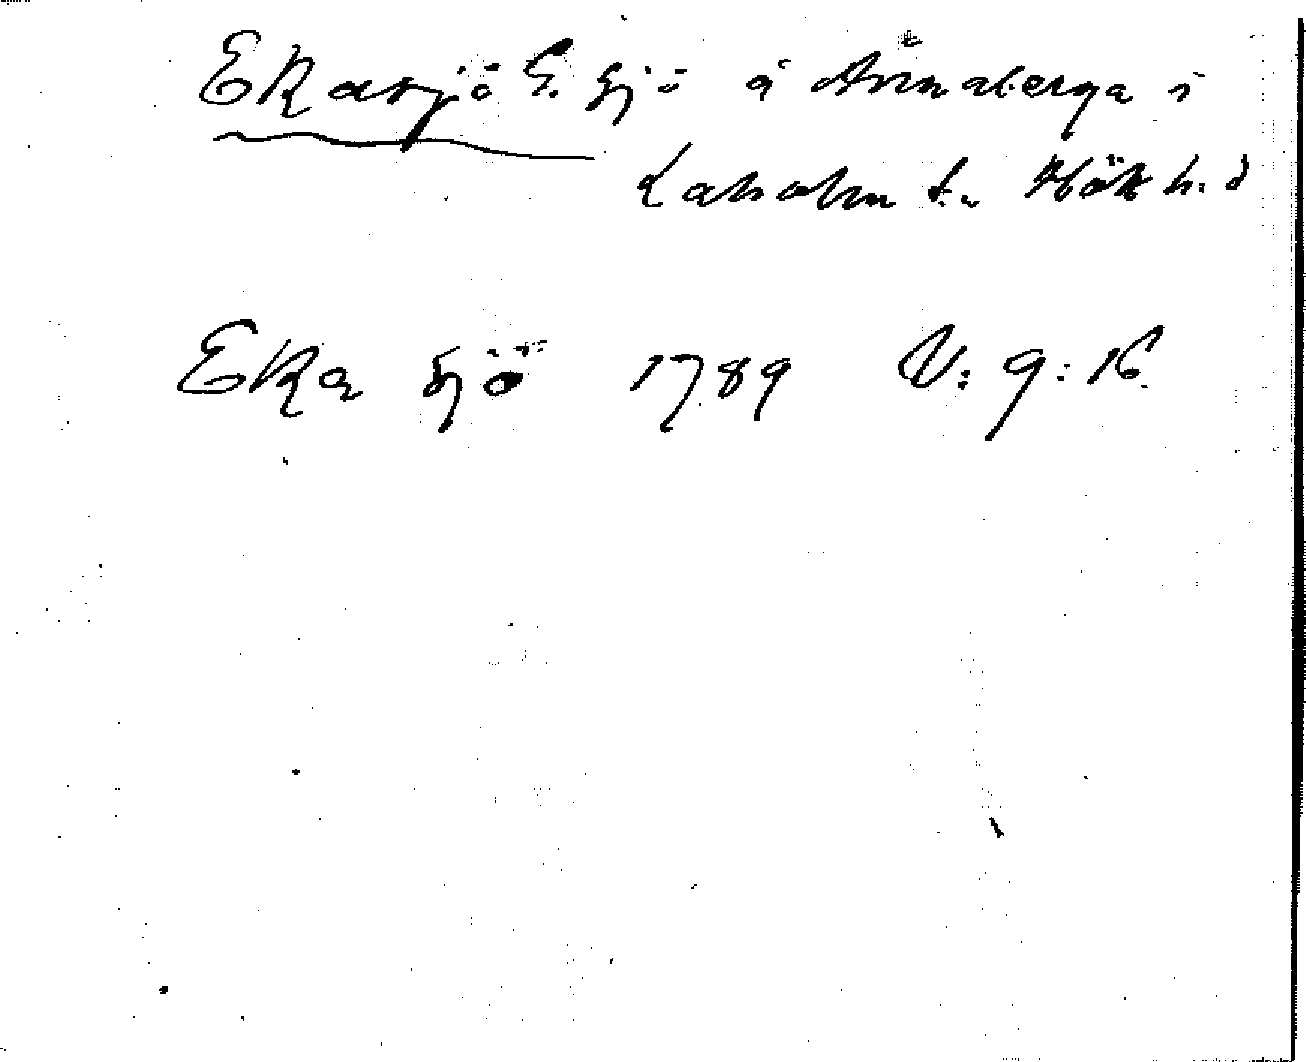 Ekasjö f. sjö å Annaberga i
Laholm l. Hök h. d
Eka sjö 1789 V: 9: 16.